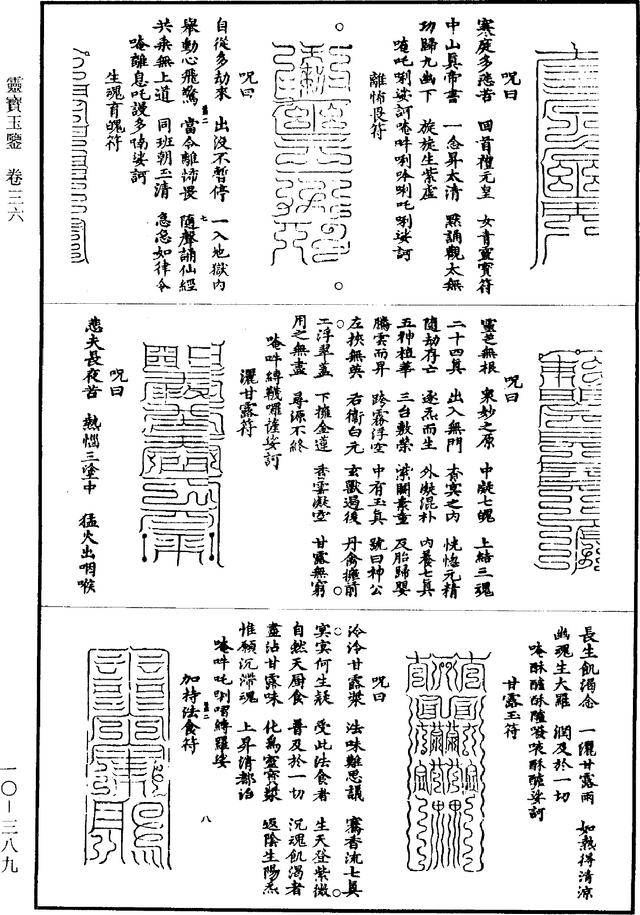 靈寶玉鑒 卷三六
一〇—三八九
呪曰
寒庭多悲苦 回首禮元皇 女青靈寶符
中山真帝書 一念昇太清 默誦觀太無
功歸九幽下 旋旋生紫虛
唵吽唎 唎吒唎娑訶
離怖畏符
呪曰
自從多劫來 出沒不暫停 一入地獄內
舉動心飛驚 當令離怖畏 隨聲誦仙經
共乘無上道 同班朝玉清 急急如律令
唵離息吒謾多喃娑訶
生魂育魄符
七
呪曰
靈芝無根 衆妙之原 中凝七魄 上結三魂
二十四真 出入無門 杳冥之內 恍惚元精
隨劫存亡 逐炁而生 外凝混朴 內養七真
五神植華 三台敷榮 紫關素童 及胎歸嬰
騰雲而昇 跨霧浮空 中有玉真 號曰神公
左挾無英 右衛白元 玄獸過後 丹禽擁前
工浮翠蓋 下擁金蓮 香雲凝空 甘露無窮
用之無盡 尋源不終
唵吽縛韈囉薩娑訶
灑甘露符
呪曰
悲夫長夜苦 熱惱三塗中 猛火出咽喉
長生飢渴念 一灑甘露雨 如熱得清涼
幽魂生大羅 潤及於一切
甘露王符
呪曰
泠泠甘露漿 法味難思議 騫香流七真
冥冥何生疑 受此法食者 生天登紫微
自然天厨食 普及於一切 沉魂飢渴者
盡沾甘露味 化爲靈寶漿 返陰生陽炁
惟願沉滯魂 上昇清都泊
唵吽吒唎囉縛羅娑
加持法食符
八